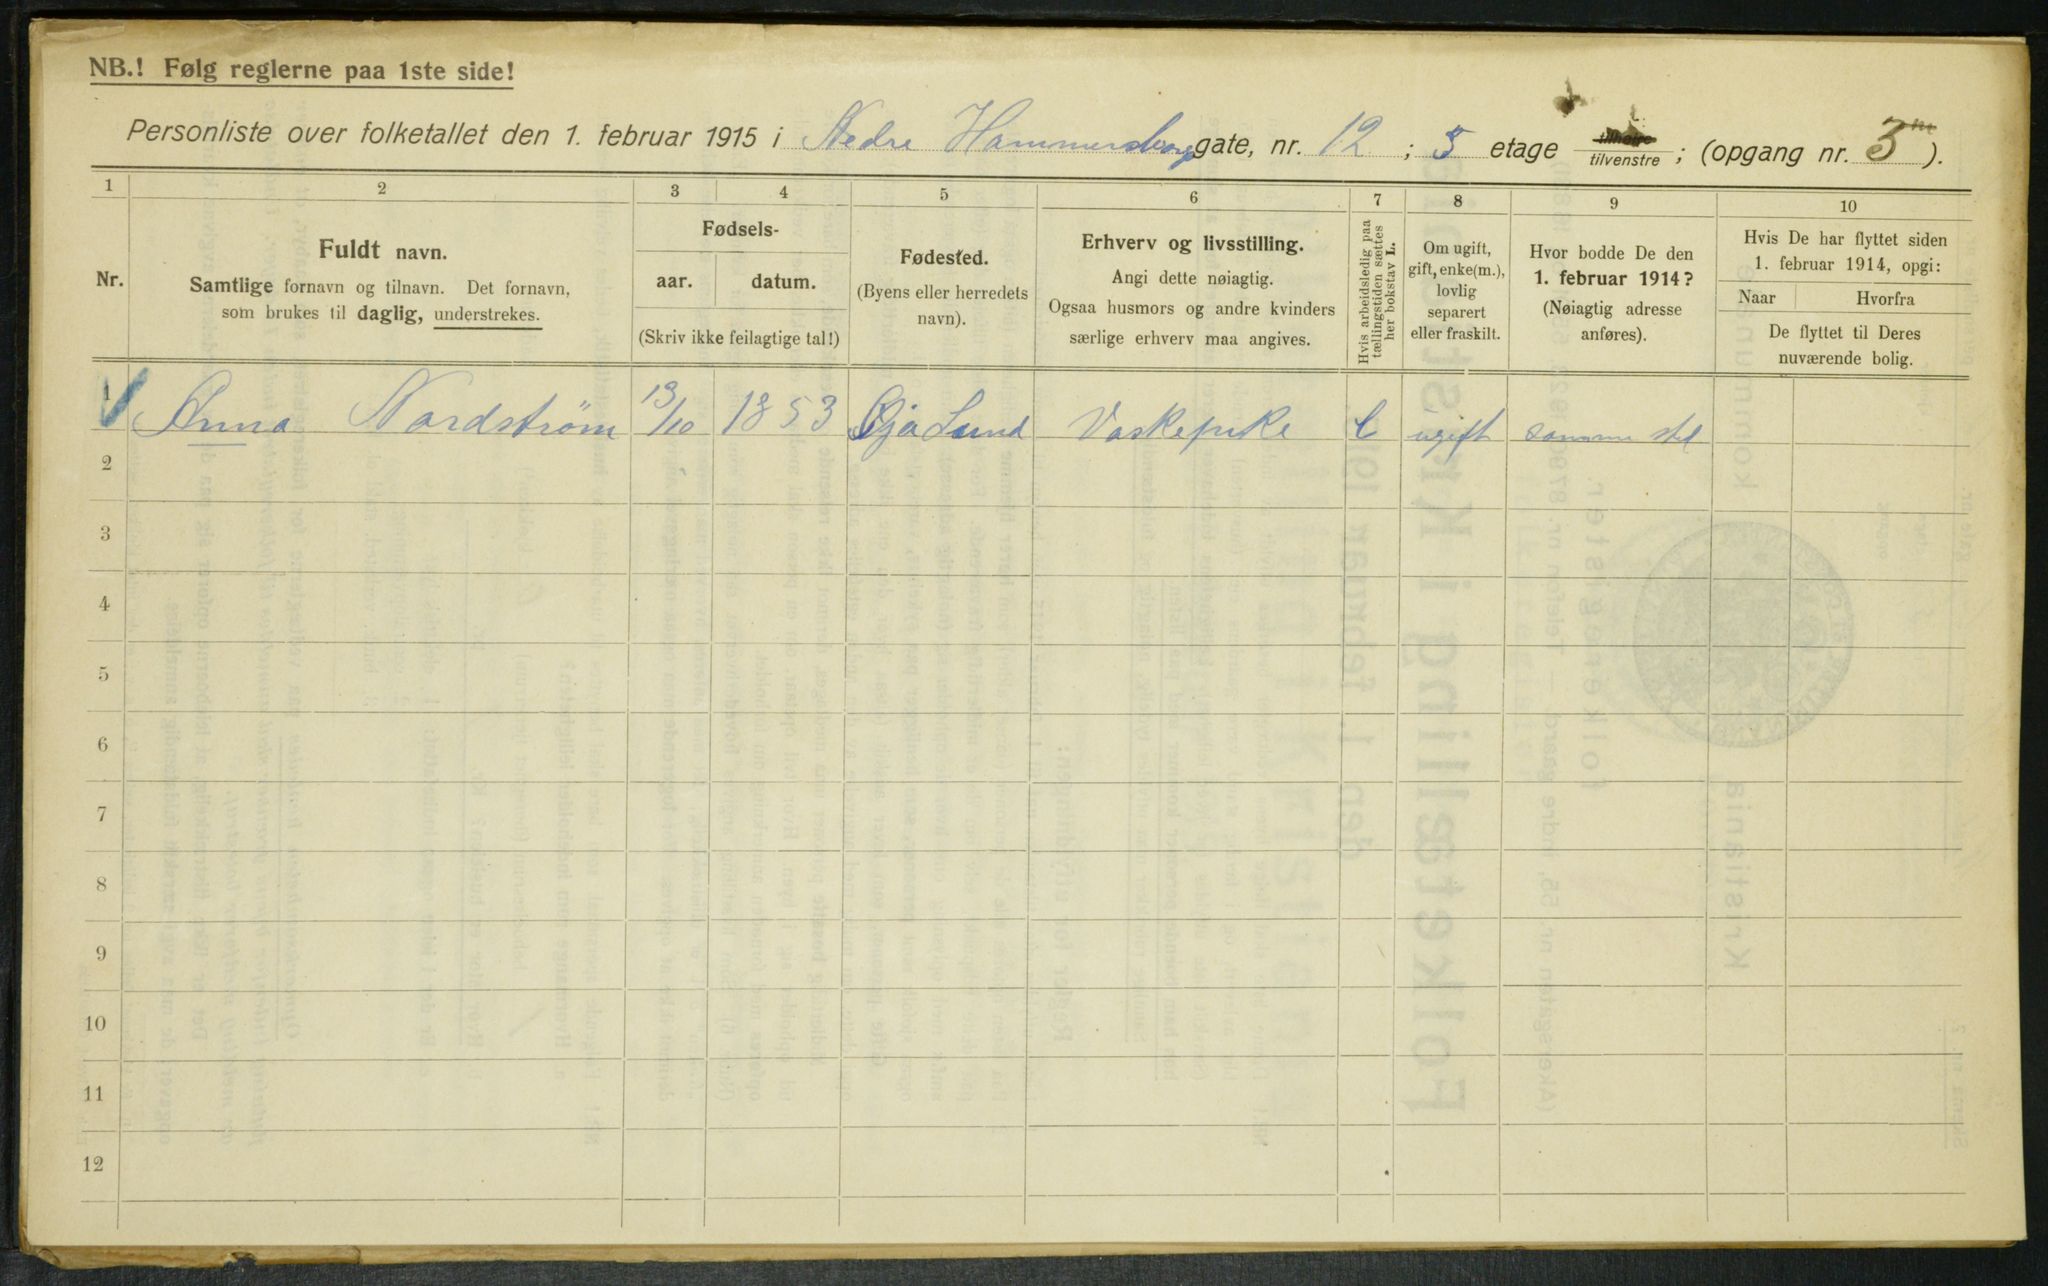 NB.! Følg reglerne paa 1ste side!
Personliste over folketallet den 1. februar 1915 i Nedre Hammersborg gate, nr. 12 ; 5 etage tilhøire tilvenstre ; (opgang nr. 3 ).
1 2 3 4 5 6 7 8 9 10
Nr.
Fuldt navn.
Samtlige fornavn og tilnavn. Det fornavn,
som brukes til daglig, understrekes.
Fødsels-
aar. datum.
(Skriv ikke feilagtige tal!)
Fødested.
(Byens eller herredets
navn).
Erhverv og livsstilling.
Angi dette nøiagtig.
Ogsaa husmors og andre kvinders
særlige erhverv maa angives.
Hvis arbeidsledig paa
tællingstiden sættes
her bokstav L.
Om ugift,
gift, enke(m.),
lovlig
separert
eller fraskilt.
Hvor bodde De den
1. februar 1914?
(Nøiagtig adresse
anføres).
Hvis De har flyttet siden
1. februar 1914, opgi:
Naar Hvorfra
De flyttet til Deres
nuværende bolig.
1 Anna Nordstrøm 13/10 1853 Vaskepike ugift samme sted
2
3
4
5
6
7
8
9
10
11
12